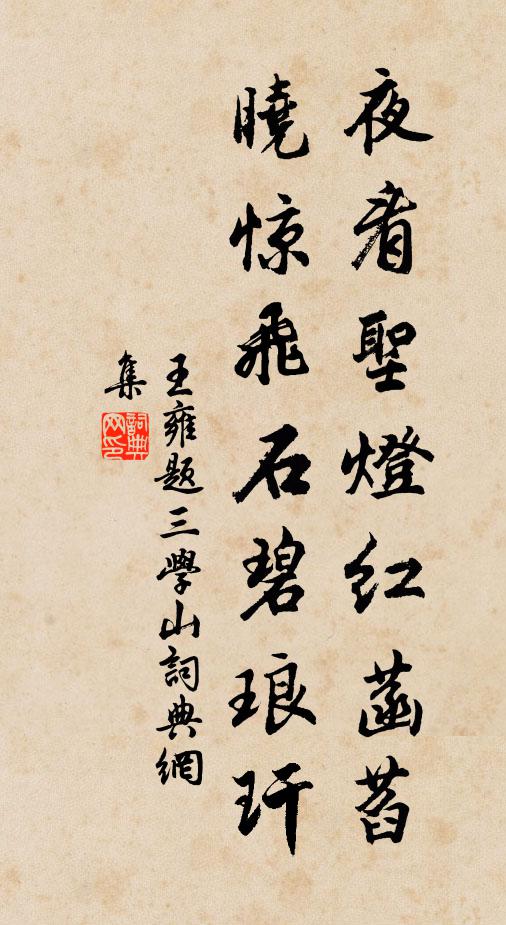 夜看聖燈紅菡萏
曉惊飛石碧琅玕
王雍題三學山詞典網
集
詞典网印